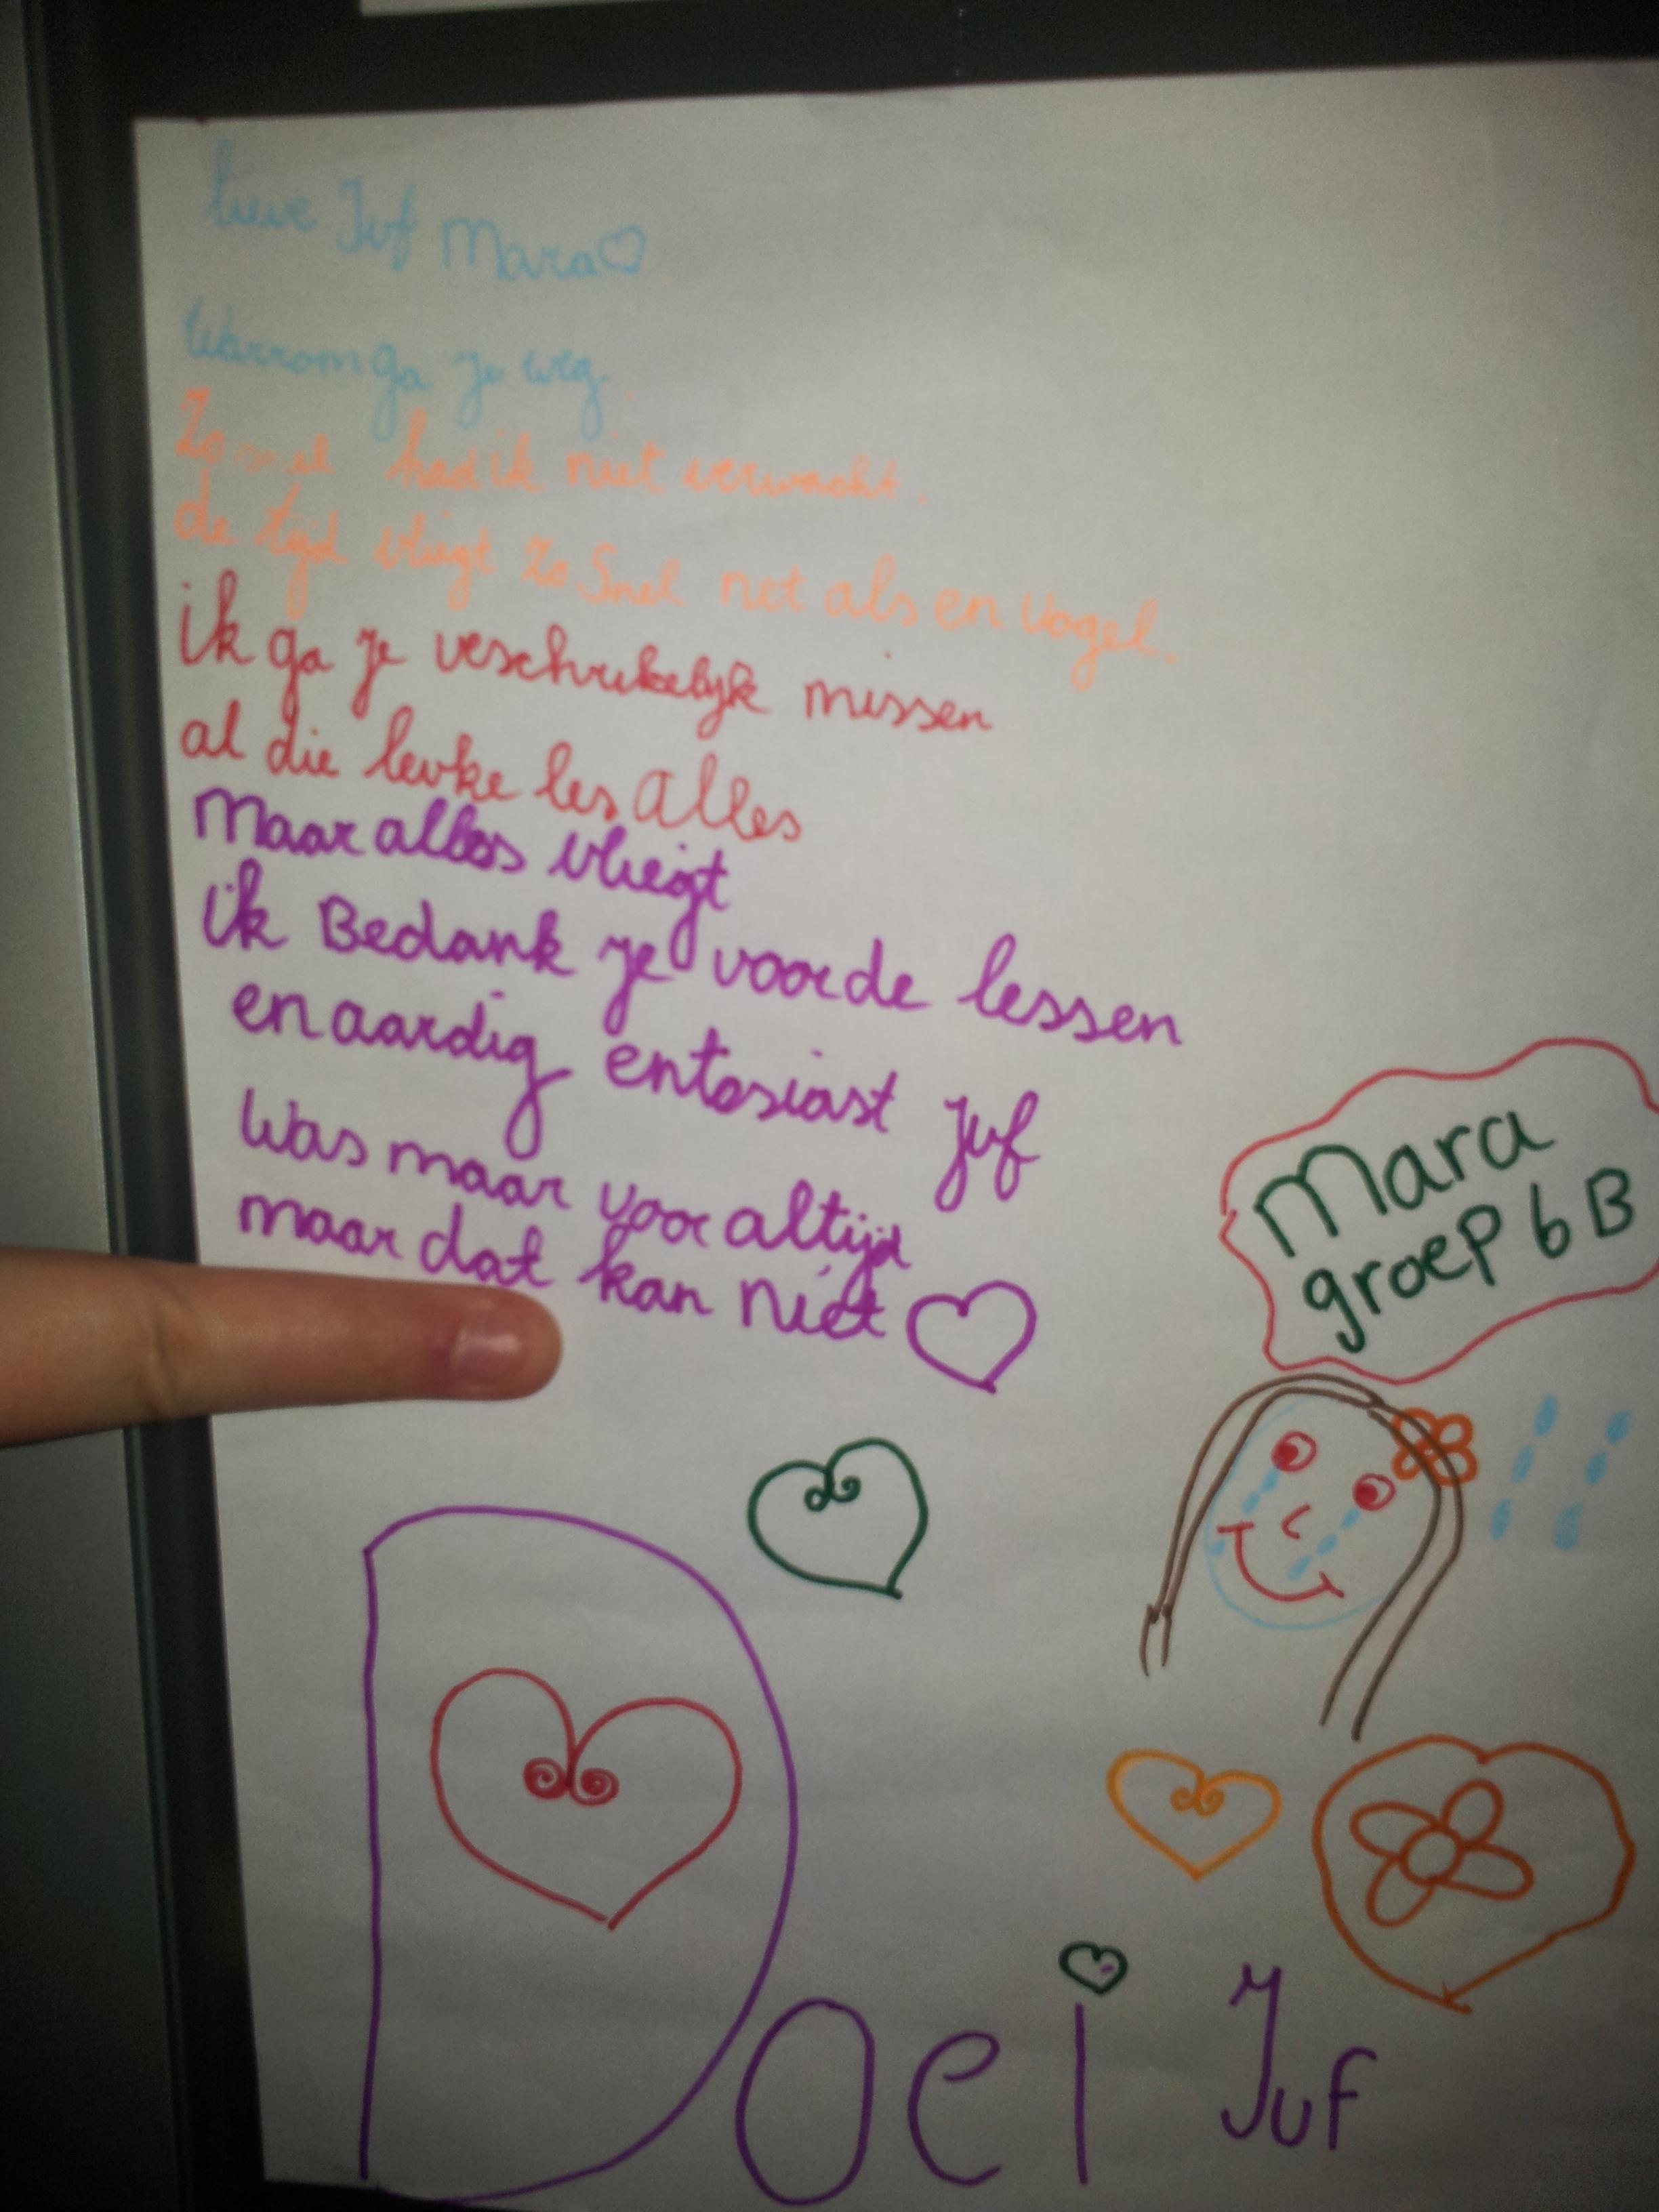 lieve Juf Mara
Warrom ga je weg.
Zo snel had ik niet verwacht.
de tijd vliegt Zo Snel net als en Vogel.
ik ga je veschrikelijk missen
al die leuke les alles
Maar alles vliegt
ik Bedank je voor de lessen
en aardig entosiast juf
Was maar voor altijd
maar dat kan niet
Mara
groep 6B
Doei Juf